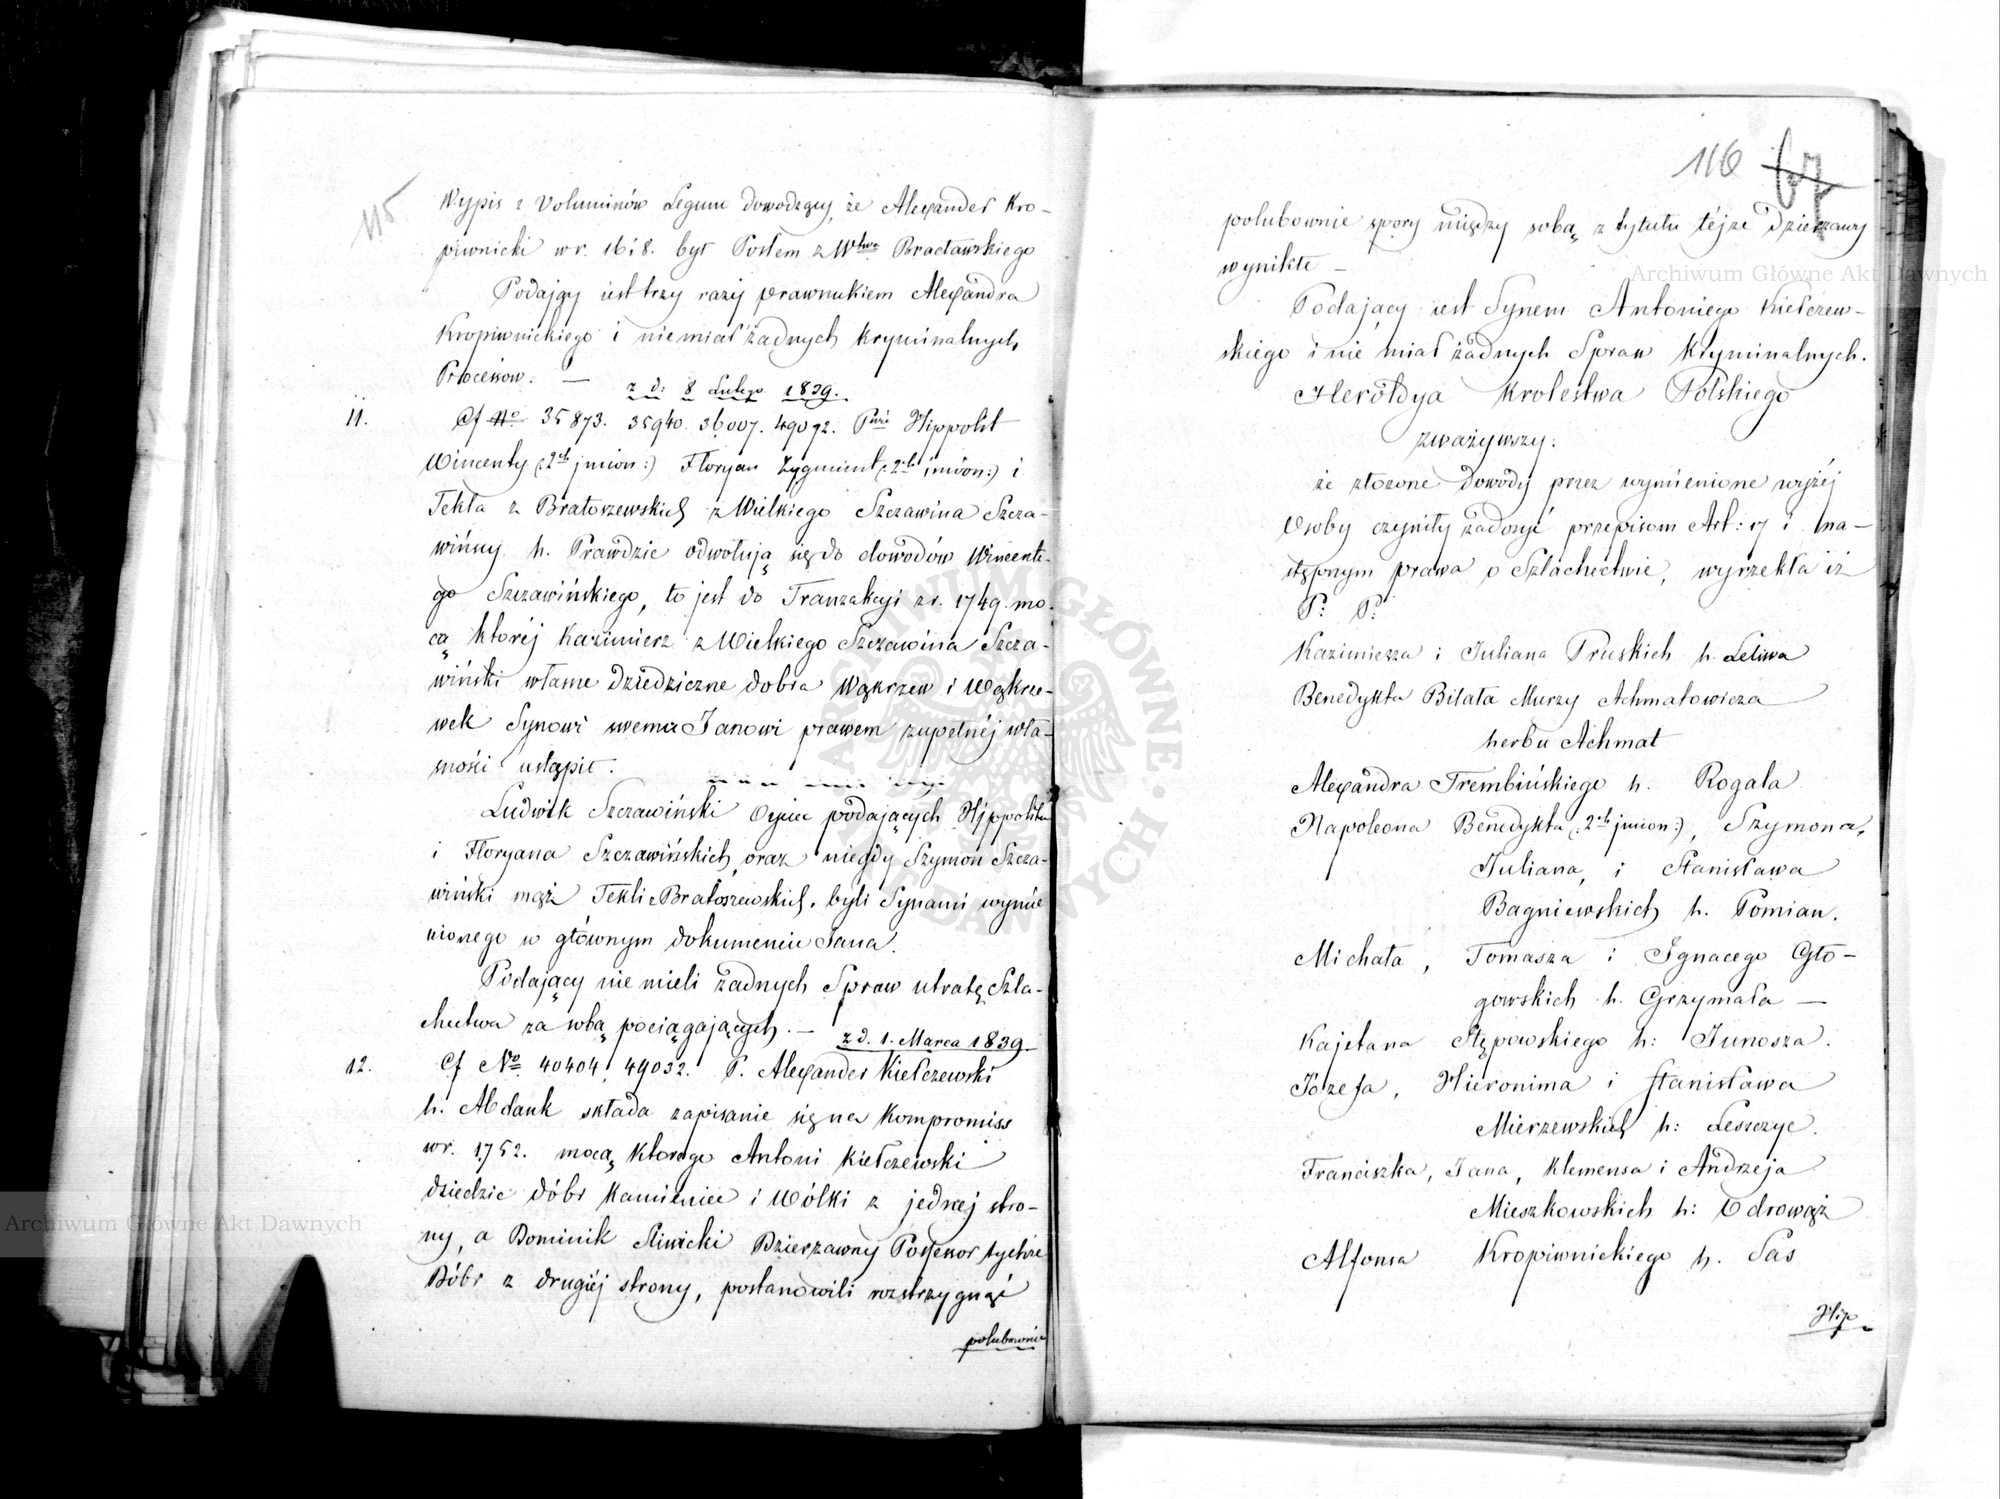 115
Wypis z Voluminów Legum dowodzący, że Alexander Kro-
piwnicki w r. 1618. był Posłem z Wtwa Bracławskiego
Podający jest trzy razy prawnukiem Alexandra
Kropiwnickiego i niemiał żadnych Kryminalnych
Processow. —
z d: 8 Lutego 1839.
11. Cf No 35873. 35940. 36007. 49092. Hippolit
Wincenty (:2ch imion:) Floryan Zygmunt (:2ch imion:) i
Tekla z Bratoszewskich z Wielkiego Szczawina Szcza-
wińscy h. Prawdzic odwołują się do dowodów Wincente-
go Szczawińskiego, to jest do Tranzakcyi z r. 1749. mo-
cą której Kazimierz z Wielkiego Szczawina Szcza-
wiński własne dziedziczne dobra Wąkrzew i Wąkrze-
wek Synowi swemu Janowi prawem zupełnéj wła-
sności ustąpił.
Ludwik Szczawiński Ojciec podających Hippolita
i Floryana Szczawińskich, oraz niegdy Szymon Szcza-
wiński mąż Tekli z Bratoszewskich, byli Synami wymie
nionego w głównym dokumencie Jana.
Podający nie mieli żadnych Spraw utratę Szla-
chectwa za sobą pociągających. —
z d. 1. Marca 1839.
12. Cf No 40404, 49032. P. Alexander Kiełczewski
h. Abdank składa zapisanie się na Kompromiss
w r. 1752. mocą którego Antoni Kiełczewski
dziedzic dóbr Kamieniec i Wólki z jednej stro-
ny, a Dominik Sliwicki Dzierzawny Possessor tychże
Dóbr z drugiéj strony, postanowili rozstrzygnąć
polubownie
116 67
polubownie spory między sobą z tytułu téjze dzierzawy
wynikłe —
Podający jest Synem Antoniego Kiełczew-
skiego i nie miał żadnych Spraw Kryminalnych.
Heroldya Krolestwa Polskiego
zważywszy:
że złożone dowody przez wymienione wyżéj
Osoby czyniły zadosyć przepisom Art: 17 i na-
stępnym prawa o Szlachectwie, wyrzekła iż
P: P:
Kazimierza i Juliana Pruskich h. Leliwa
Benedykta Bilala Murzy Achmatowicza
herbu Achmat
Alexandra Trembińskiego h. Rogala
Napoleona Benedykta (:2ch imion:), Szymona,
Juliana, i Stanisława
Bagniewskich h. Pomian.
Michała, Tomasza i Ignacego Gło-
gowskich h. Grzymała —
Kajetana Stępowskiego h: Junosza.
Józefa, Hieronima i Stanisława
Mierzewskich h: Leszczyc.
Franciszka, Jana, Klemensa i Andrzeja
Mieszkowskich h: Odrowąż
Alfonsa Kropiwnickiego h. Sas
Hip
Archiwum Główne Akt Dawnych
Archiwum Główne Akt Dawnych
ARCHIWUM GŁÓWNE AKT DAWNYCH